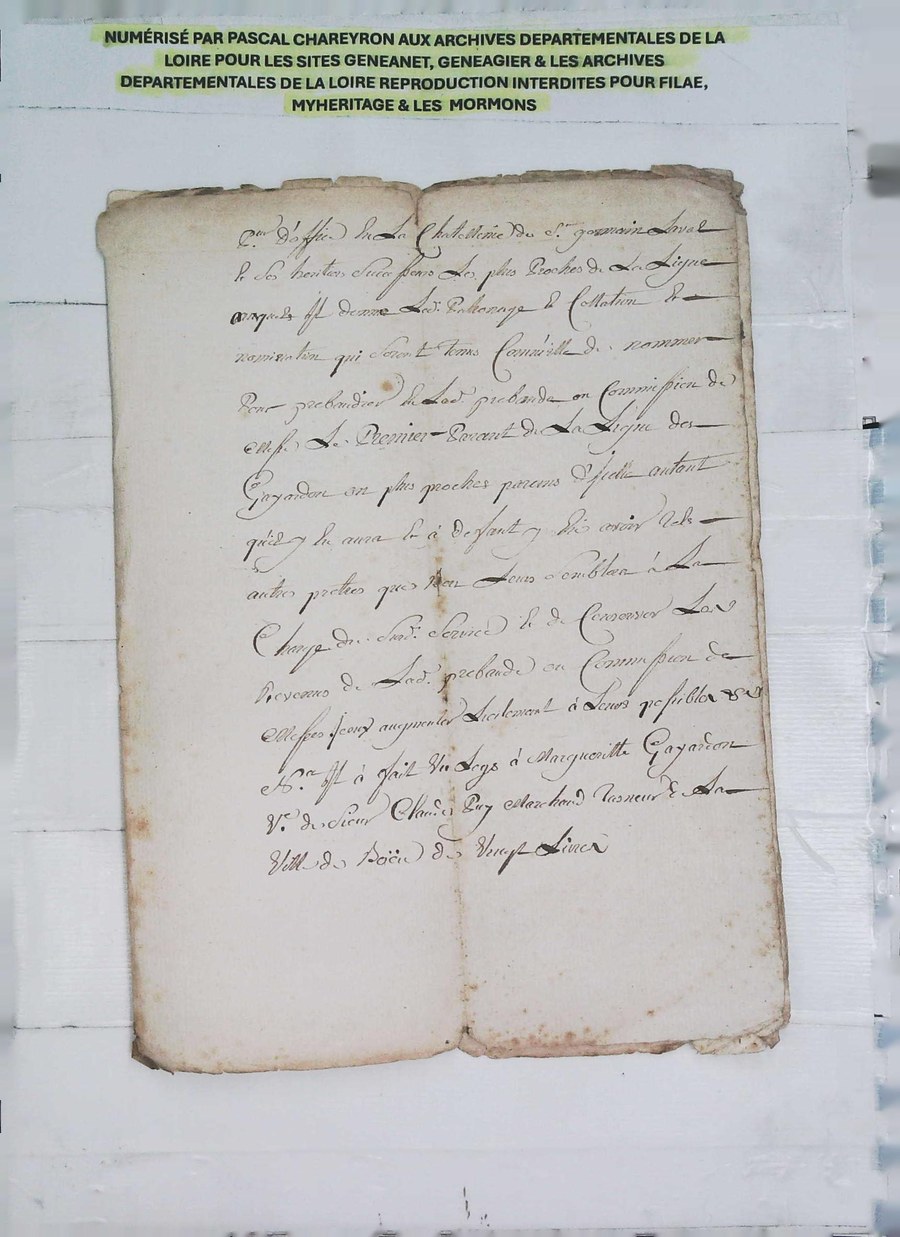 NUMÉRISÉ PAR PASCAL CHAREYRON AUX ARCHIVES DEPARTEMENTALES DE LA
LOIRE POUR LES SITES GENEANET, GENEAGIER & LES ARCHIVES
DEPARTEMENTALES DE LA LOIRE REPRODUCTION INTERDITES POUR FILAE,
MYHERITAGE & LES MORMONS
P.eur d'office en La Chatellenie de S.t germain Laval
et ses heritiers successeurs Les plus Proches de La Ligne
auxquels il donne Lad. Pattronage et Collation et
nomination qui seront tenus de nommer
Pour prebandier en Lad. prebande ou Commission de
Messe Le Premier Parent de La Ligne des
Gayardon ou plus proches parens d'icelle autant
qu'il y en aura et à deffaut y en avoir tels
autres pretres que bon Leur semblera à La
Charge du Susd. Service et de Conserver Les
Revenus de Lad. prebande ou Commission de
Messes iceux augmenter à Leurs possibles &a
Il à fait un Legs à Margueritte Gayardon
V.e de Sieur Claude Puy Marchand Tanneur de La
Ville de Boën de Vingt Livres